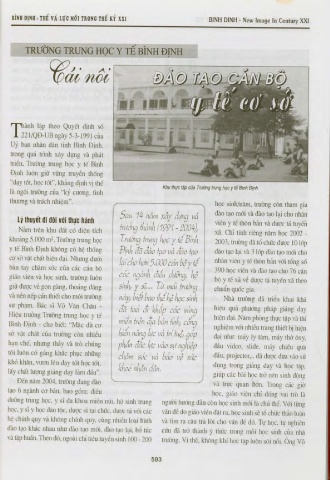 BÌNH ĐỊNH - THẾ VÀ LỰC MỚI TRONG THẾ KỶ XXI
BINH DINH - New Image In Century XXI
TRƯỜNG TRUNG HỌC Y TẾ BÌNH ĐỊNH
Cái nôi
ĐÀO TẠO CÁN BỘ
y tế cơ sở
Thành lập theo Quyết định số
221/QĐ-UB ngày 5-3-1991 của
Uỷ ban nhân dân tỉnh Bình Định,
trong quá trình xây dựng và phát
triển, Trường trung học y tế Bình
Định luôn giữ vững truyền thống
"dạy tốt, học tốt", khẳng định vị thế
là ngôi trường của "kỷ cương, tình
thương và trách nhiệm".
Khu thực tập của Trường trung học y tế Bình Định
Lý thuyết đi đôi với thực hành
Nằm trên khu đất có diện tích
khoảng 5.000 m², Trường trung học
y tế Bình Định không có hệ thống
cơ sở vật chất hiện đại. Nhưng dưới
bàn tay chăm sóc của các cán bộ
giáo viên và học sinh, trường luôn
giữ được vẻ gọn gàng, thoáng đãng
và nền nếp cần thiết cho môi trường
sư phạm. Bác sĩ Võ Văn Châu -
Hiệu trưởng Trường trung học y tế
Bình Định - cho biết: "Mặc dù cơ
sở vật chất của trường còn nhiều
hạn chế, nhưng thầy và trò chúng
tôi luôn cố gắng khắc phục những
khó khăn, vươn lên dạy tốt học tốt,
lấy chất lượng giảng dạy làm đầu".
Đến năm 2004, trường đang đào
tạo 6 ngành cơ bản, bao gồm: điều
dưỡng trung học, y sĩ đa khoa miền núi, hộ sinh trung
học, y sĩ y học dân tộc, dược sĩ tại chức, dược tá với các
hệ chính quy và không chính quy, cùng nhiều loại hình
đào tạo khác nhau như đào tạo mới, đào tạo lại, bổ túc
và tập huấn. Theo đó, ngoài chỉ tiêu tuyển sinh 100 - 200
Sau 14 năm xây dựng và
trưởng thành (1991 - 2004),
Trường trung học y tế Bình
Định đã đào tạo và đào tạo
lại cho hơn 5.000 cán bộ y tế
các ngành điều dưỡng, hộ
sinh, y sĩ... Từ mái trường
này, biết bao thế hệ học sinh
đã toả đi khắp các vùng
miền trên địa bàn tỉnh, cống
hiến năng lực và trí tuệ, góp
phần đắc lực vào sự nghiệp
chăm sóc và bảo vệ sức
khoẻ nhân dân.
học sinh/năm, trường còn tham gia
đào tạo mới và đào tạo lại cho nhân
viên y tế thôn bản và dược tá tuyến
xã. Chỉ tính riêng năm học 2002 -
2003, trường đã tổ chức được 10 lớp
đào tạo lại và 3 lớp đào tạo mới cho
nhân viên y tế thôn bản với tổng số
390 học viên và đào tạo cho 76 cán
bộ y tế xã về dược tá tuyến xã theo
chuẩn quốc gia.
Nhà trường đã triển khai khá
hiệu quả phương pháp giảng dạy
hiện đại. Nắm phòng thực tập và thí
nghiệm với nhiều trang thiết bị hiện
đại như: máy vi tính, máy thở oxy,
đầu video, slide, máy chiếu qua
đầu, projector,... đã được đưa vào sử
dụng trong giảng dạy và học tập,
giúp các bài học trở nên sinh động
và trực quan hơn. Trong các giờ
học, giáo viên chỉ đóng vai trò là
người hướng dẫn còn học sinh mới là chủ thể. Với từng
vấn đề do giáo viên đặt ra, học sinh sẽ tổ chức thảo luận
và tìm ra câu trả lời cho vấn đề đó. Tự học, tự nghiên
cứu đã trở thành ý thức trong mỗi học sinh của nhà
trường. Vì thế, không khí học tập luôn sôi nổi. Ông Võ
593